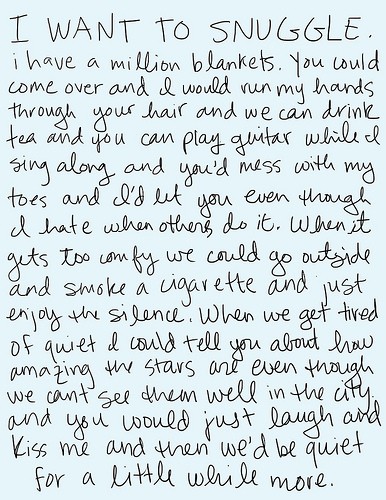 I WANT TO SNUGGLE.
i have a million blankets. You could
come over and I would run my hands
through your hair and we can drink
tea and you can play guitar while I
sing along and you'd mess with my
toes and I'd let you even though
I hate when others do it. When it
gets too comfy we could go outside
and smoke a cigarette and just
enjoy the silence. When we get tired
of quiet I could tell you about how
amazing the stars are even though
we cant see them well in the city.
and you would just laugh and
kiss me and then we'd be quiet
for a little while more.